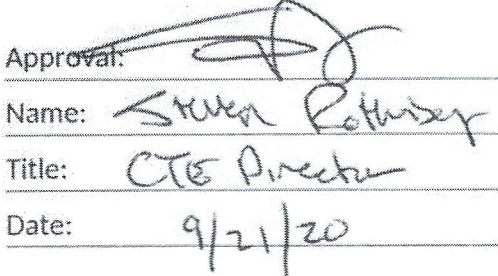 Approval:
Name: Steven
Title: CTE Director
Date: 9/21/20